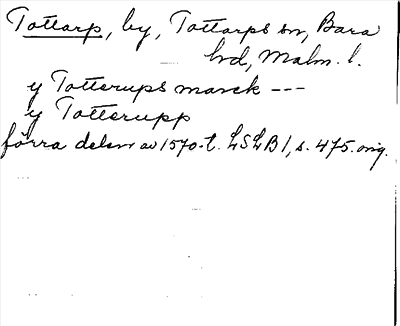 Tottarp, by, Tottarps sn, Bara
hd, Malm. l.
y Totterups marck ---
y Totterupp
förra delen av 1570-t. LSLB 1, s. 475. orig.